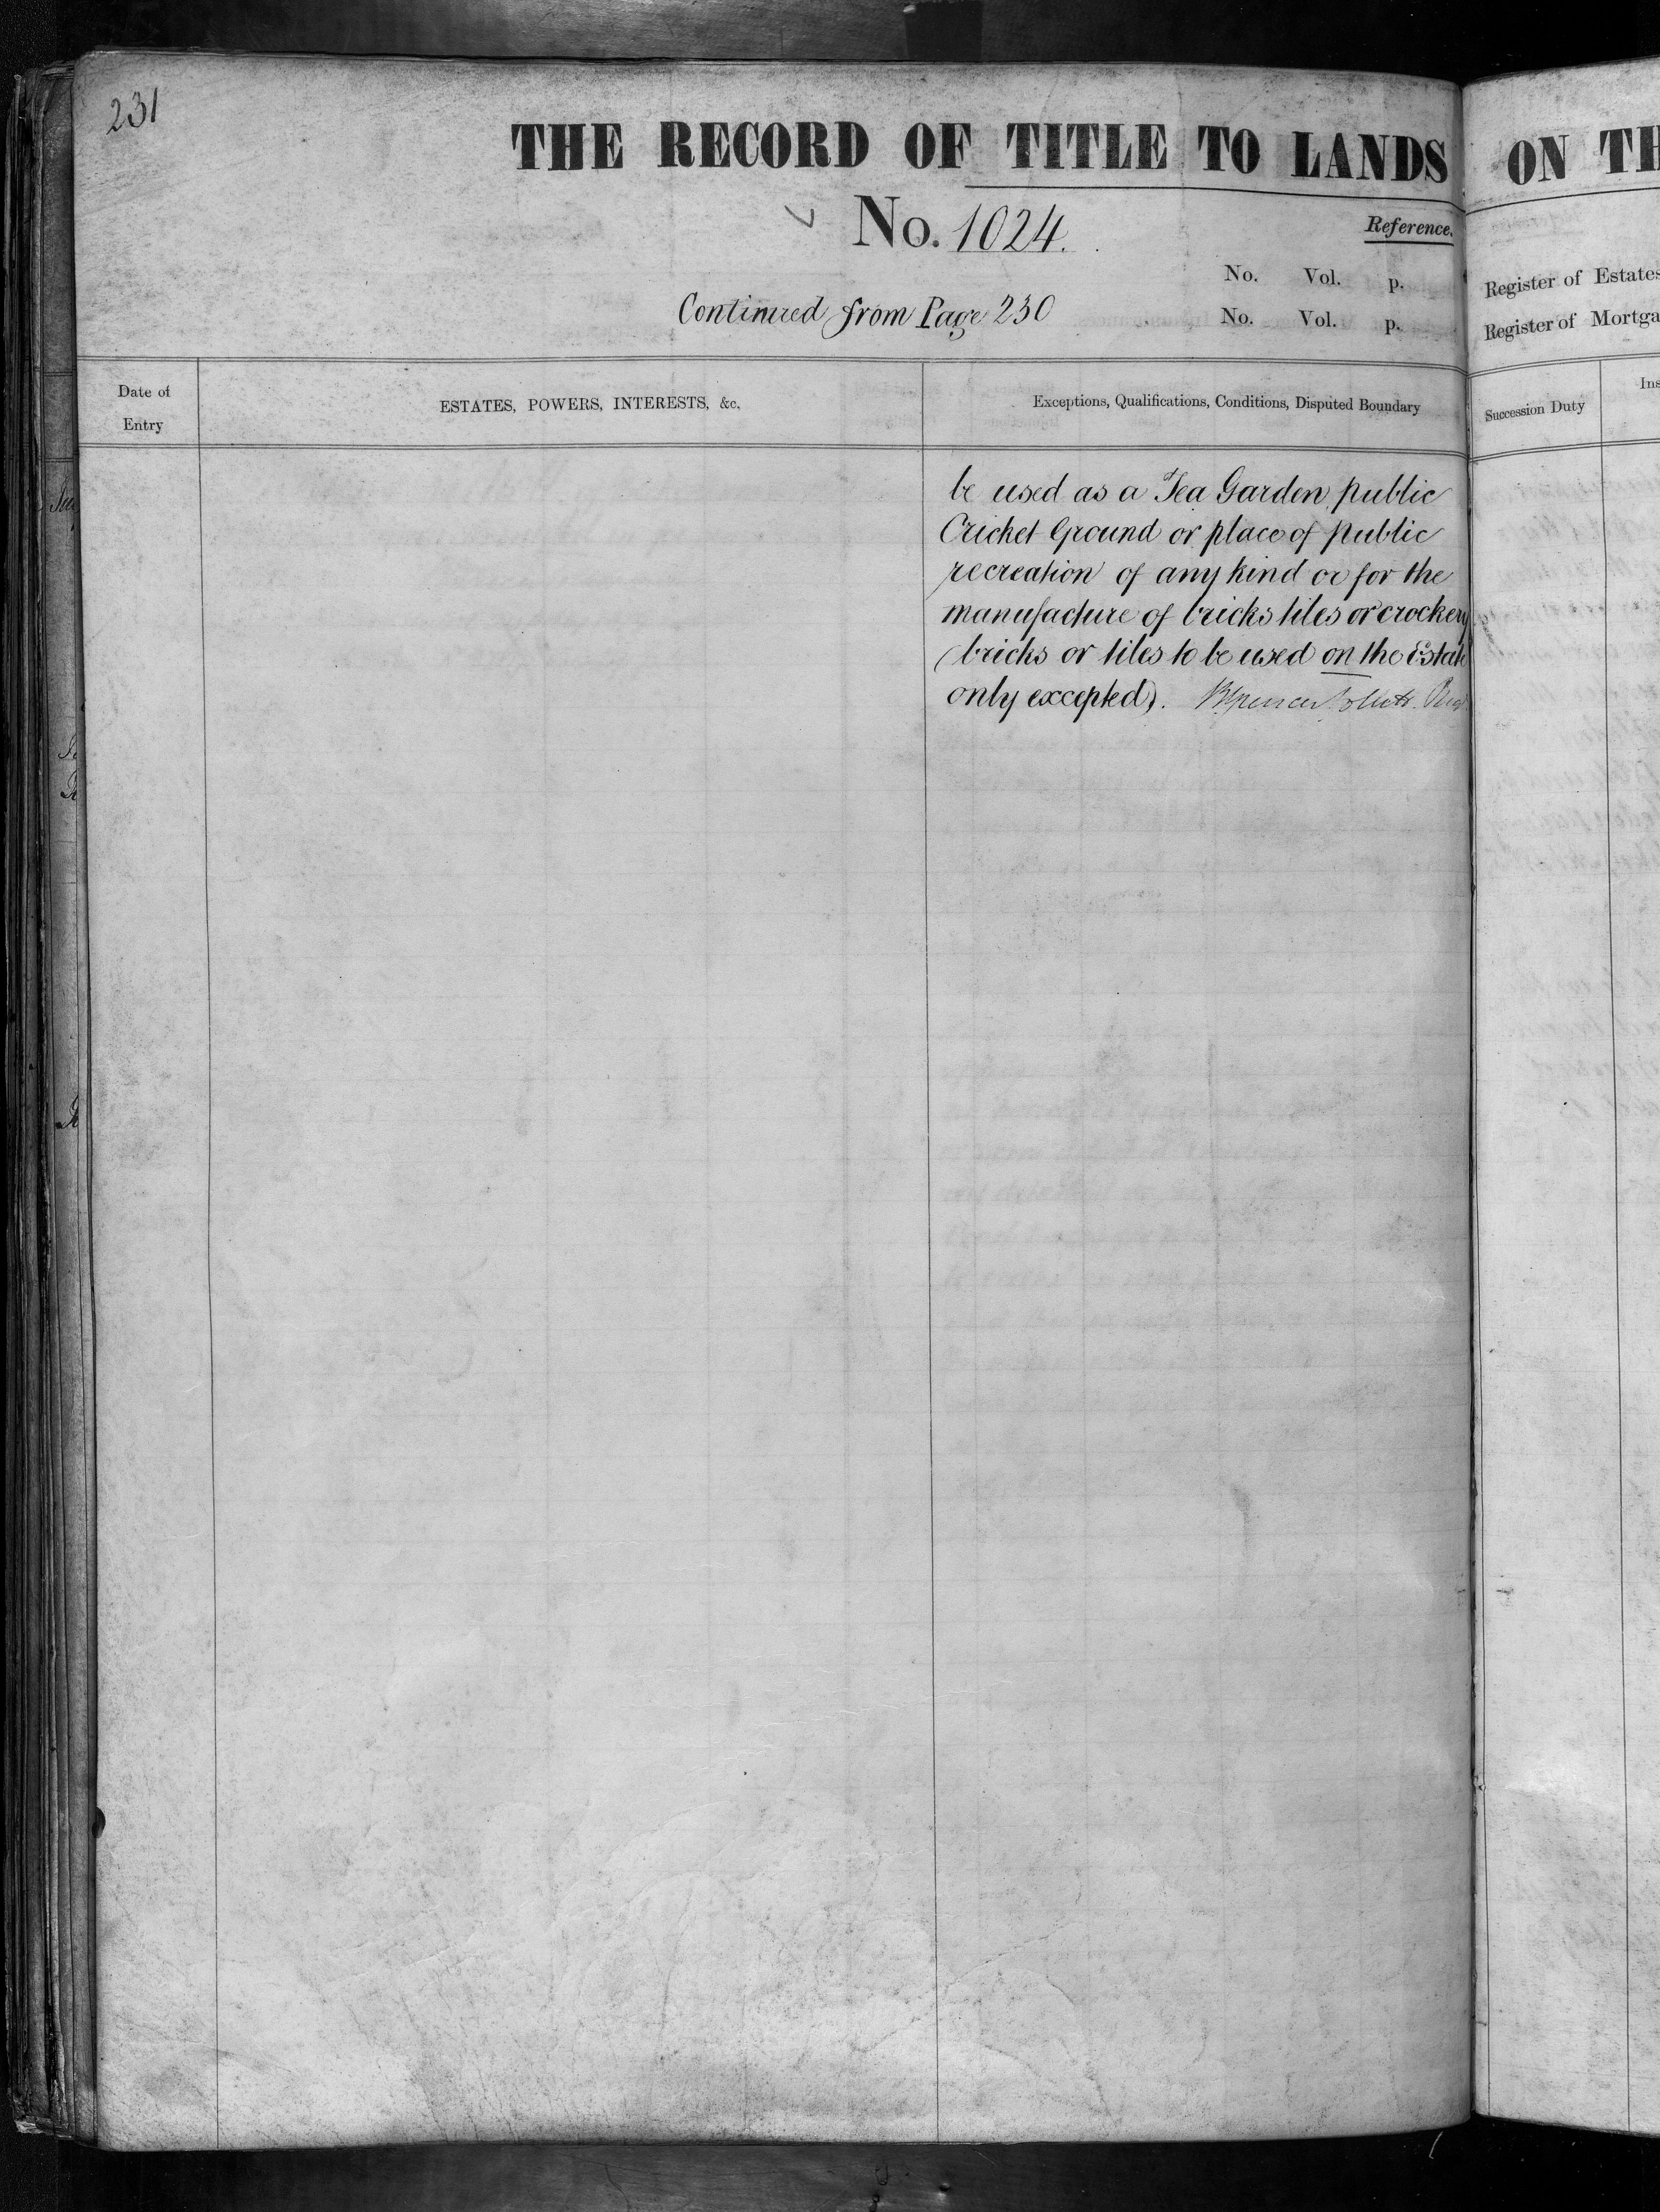 231
THE RECORD OF TITLE TO LANDS ON TH
No. 1024.
Reference.
No. Vol. p. Register of Estates
Continued from Page 230
No. Vol. p. Register of Mortga
Date of Entry
ESTATES, POWERS, INTERESTS, &c.
Exceptions, Qualifications, Conditions, Disputed Boundary
Succession Duty
Ins
be used as a Tea Garden public
Cricket Ground or place of public
recreation of any kind or for the
manufacture of bricks tiles or crockery
(bricks or tiles to be used on the Estate
only excepted).